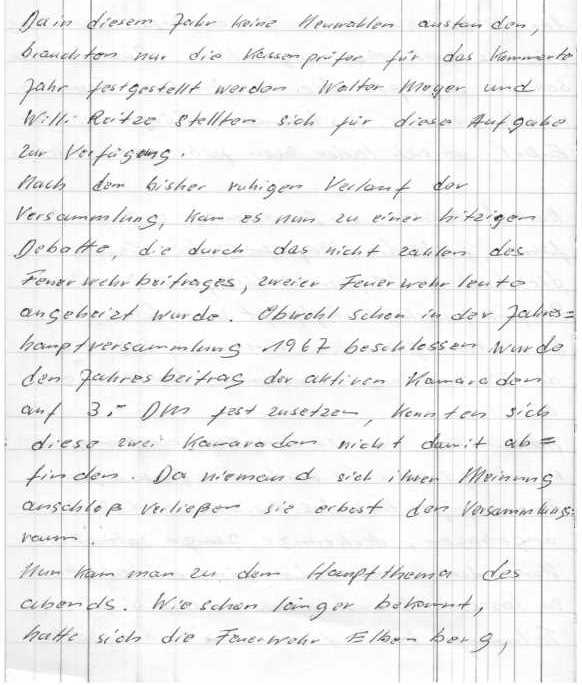 Da in diesem Jahr keine Neuwahlen anstanden,
brauchten nur die Kassenprüfer für das kommende
Jahr festgestellt werden. Walter Meyer und
Willi Reitze stellten sich für diese Aufgabe
zur Verfügung.
Nach dem bisher ruhigen Verlauf der
Versammlung, kam es nun zu einer hitzigen
Debatte, die durch das nicht zahlen des
Feuerwehrbeitrages, zweier Feuerwehrleute
angeheizt wurde. Obwohl schon in der Jahres=
hauptversammlung 1967 beschlossen wurde
den Jahresbeitrag der aktiven Kamaraden
auf 3,- DM fest zusetzen, konnten sich
diese zwei Kamaraden nicht damit ab=
finden. Da niemand sich ihrer Meinung
anschloß verließen sie erbost den Versammlungs=
raum.
Nun kam man zu dem Hauptthema des
abends. Wie schon länger bekannt,
hatte sich die Feuerwehr Elbenberg,